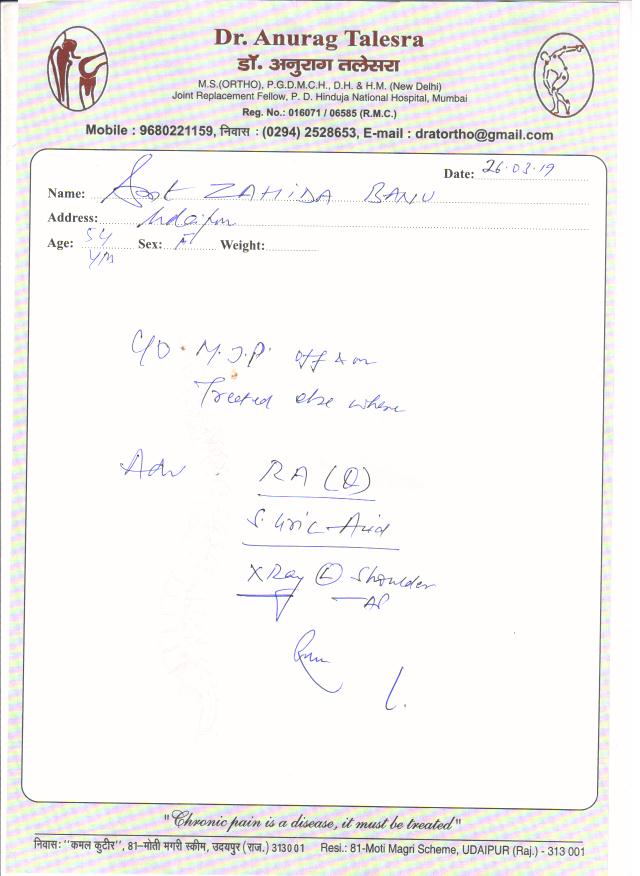 Dr. Anurag Talesra
डॉ. अनुराग तलेसरा
M.S.(ORTHO), P.G.D.M.C.H., D.H. & H.M. (New Delhi)
Joint Replacement Fellow, P. D. Hinduja National Hospital, Mumbai
Reg. No.: 016071 / 06585 (R.M.C.)
Mobile : 9680221159, निवास : (0294) 2528653, E-mail : dratortho@gmail.com
Date: 26.03.19
Name: ZAHIDA BANU
Address: Udaipur
Age: 54 Sex: F Weight:
C/O M.J.P. off & on
Treated else where
Adv RA (Q)
S. Uric Acid
X Ray (L) Shoulder
AP
"Chronic pain is a disease, it must be treated"
निवास: "कमल कुटीर", 81-मोती मगरी स्कीम, उदयपुर (राज.) 313001 Resi.: 81-Moti Magri Scheme, UDAIPUR (Raj.) - 313 001